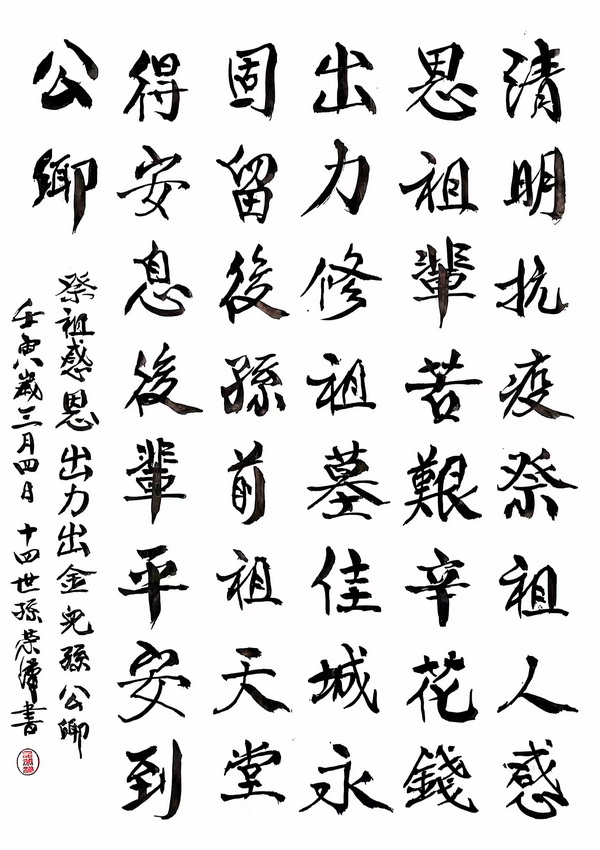 清明抗疫祭祖人感
恩祖輩苦艱辛花錢
出力修祖墓佳城永
固留後孫前祖天堂
得安息後輩平安到
公卿
祭祖感恩出力出金兒孫公卿
壬寅歲三月四日十四世孫荣濱書